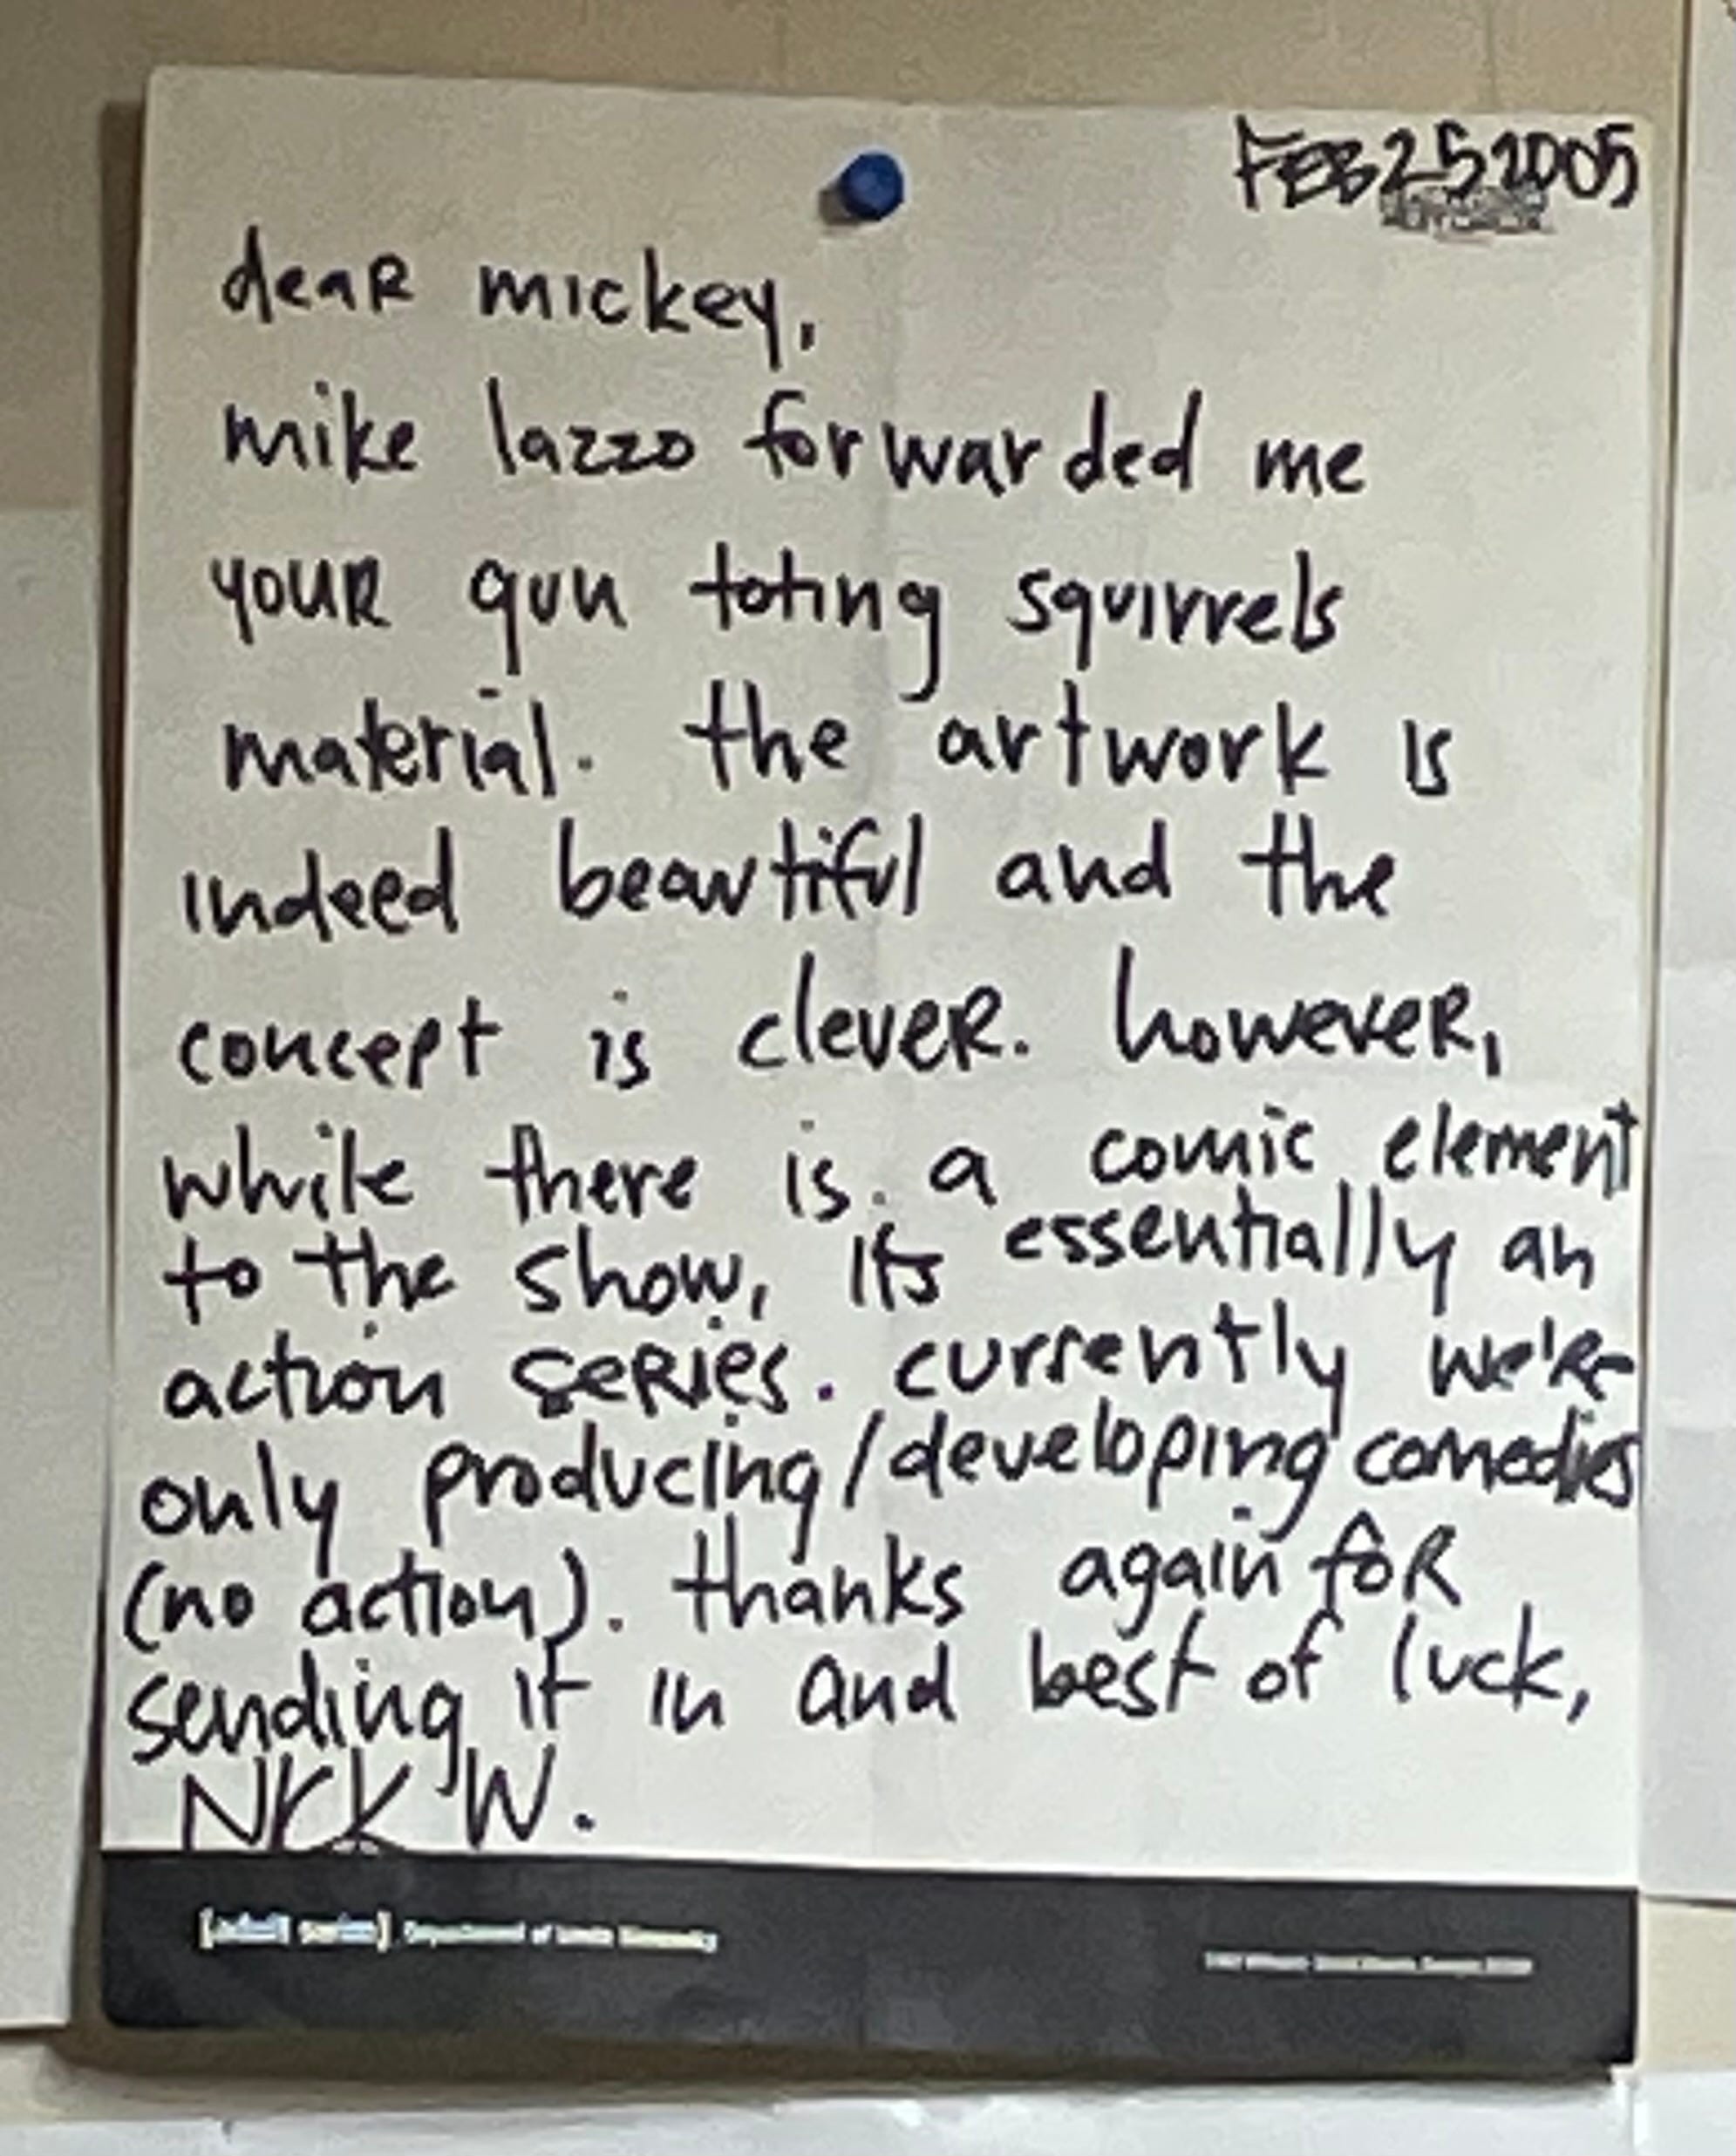 FEB 25 2005
deaR mickey,
mike lazzo forwarded me
youR gun toting squirrels
material. the artwork is
indeed beautiful and the
concept is cleveR. howeveR,
while there is a comic element
to the show, its essentially an
action seRies. currently we're
only producing/developing comedies
(no action). thanks again foR
sending it in and best of luck,
Nick W.
[adult swim] Department of